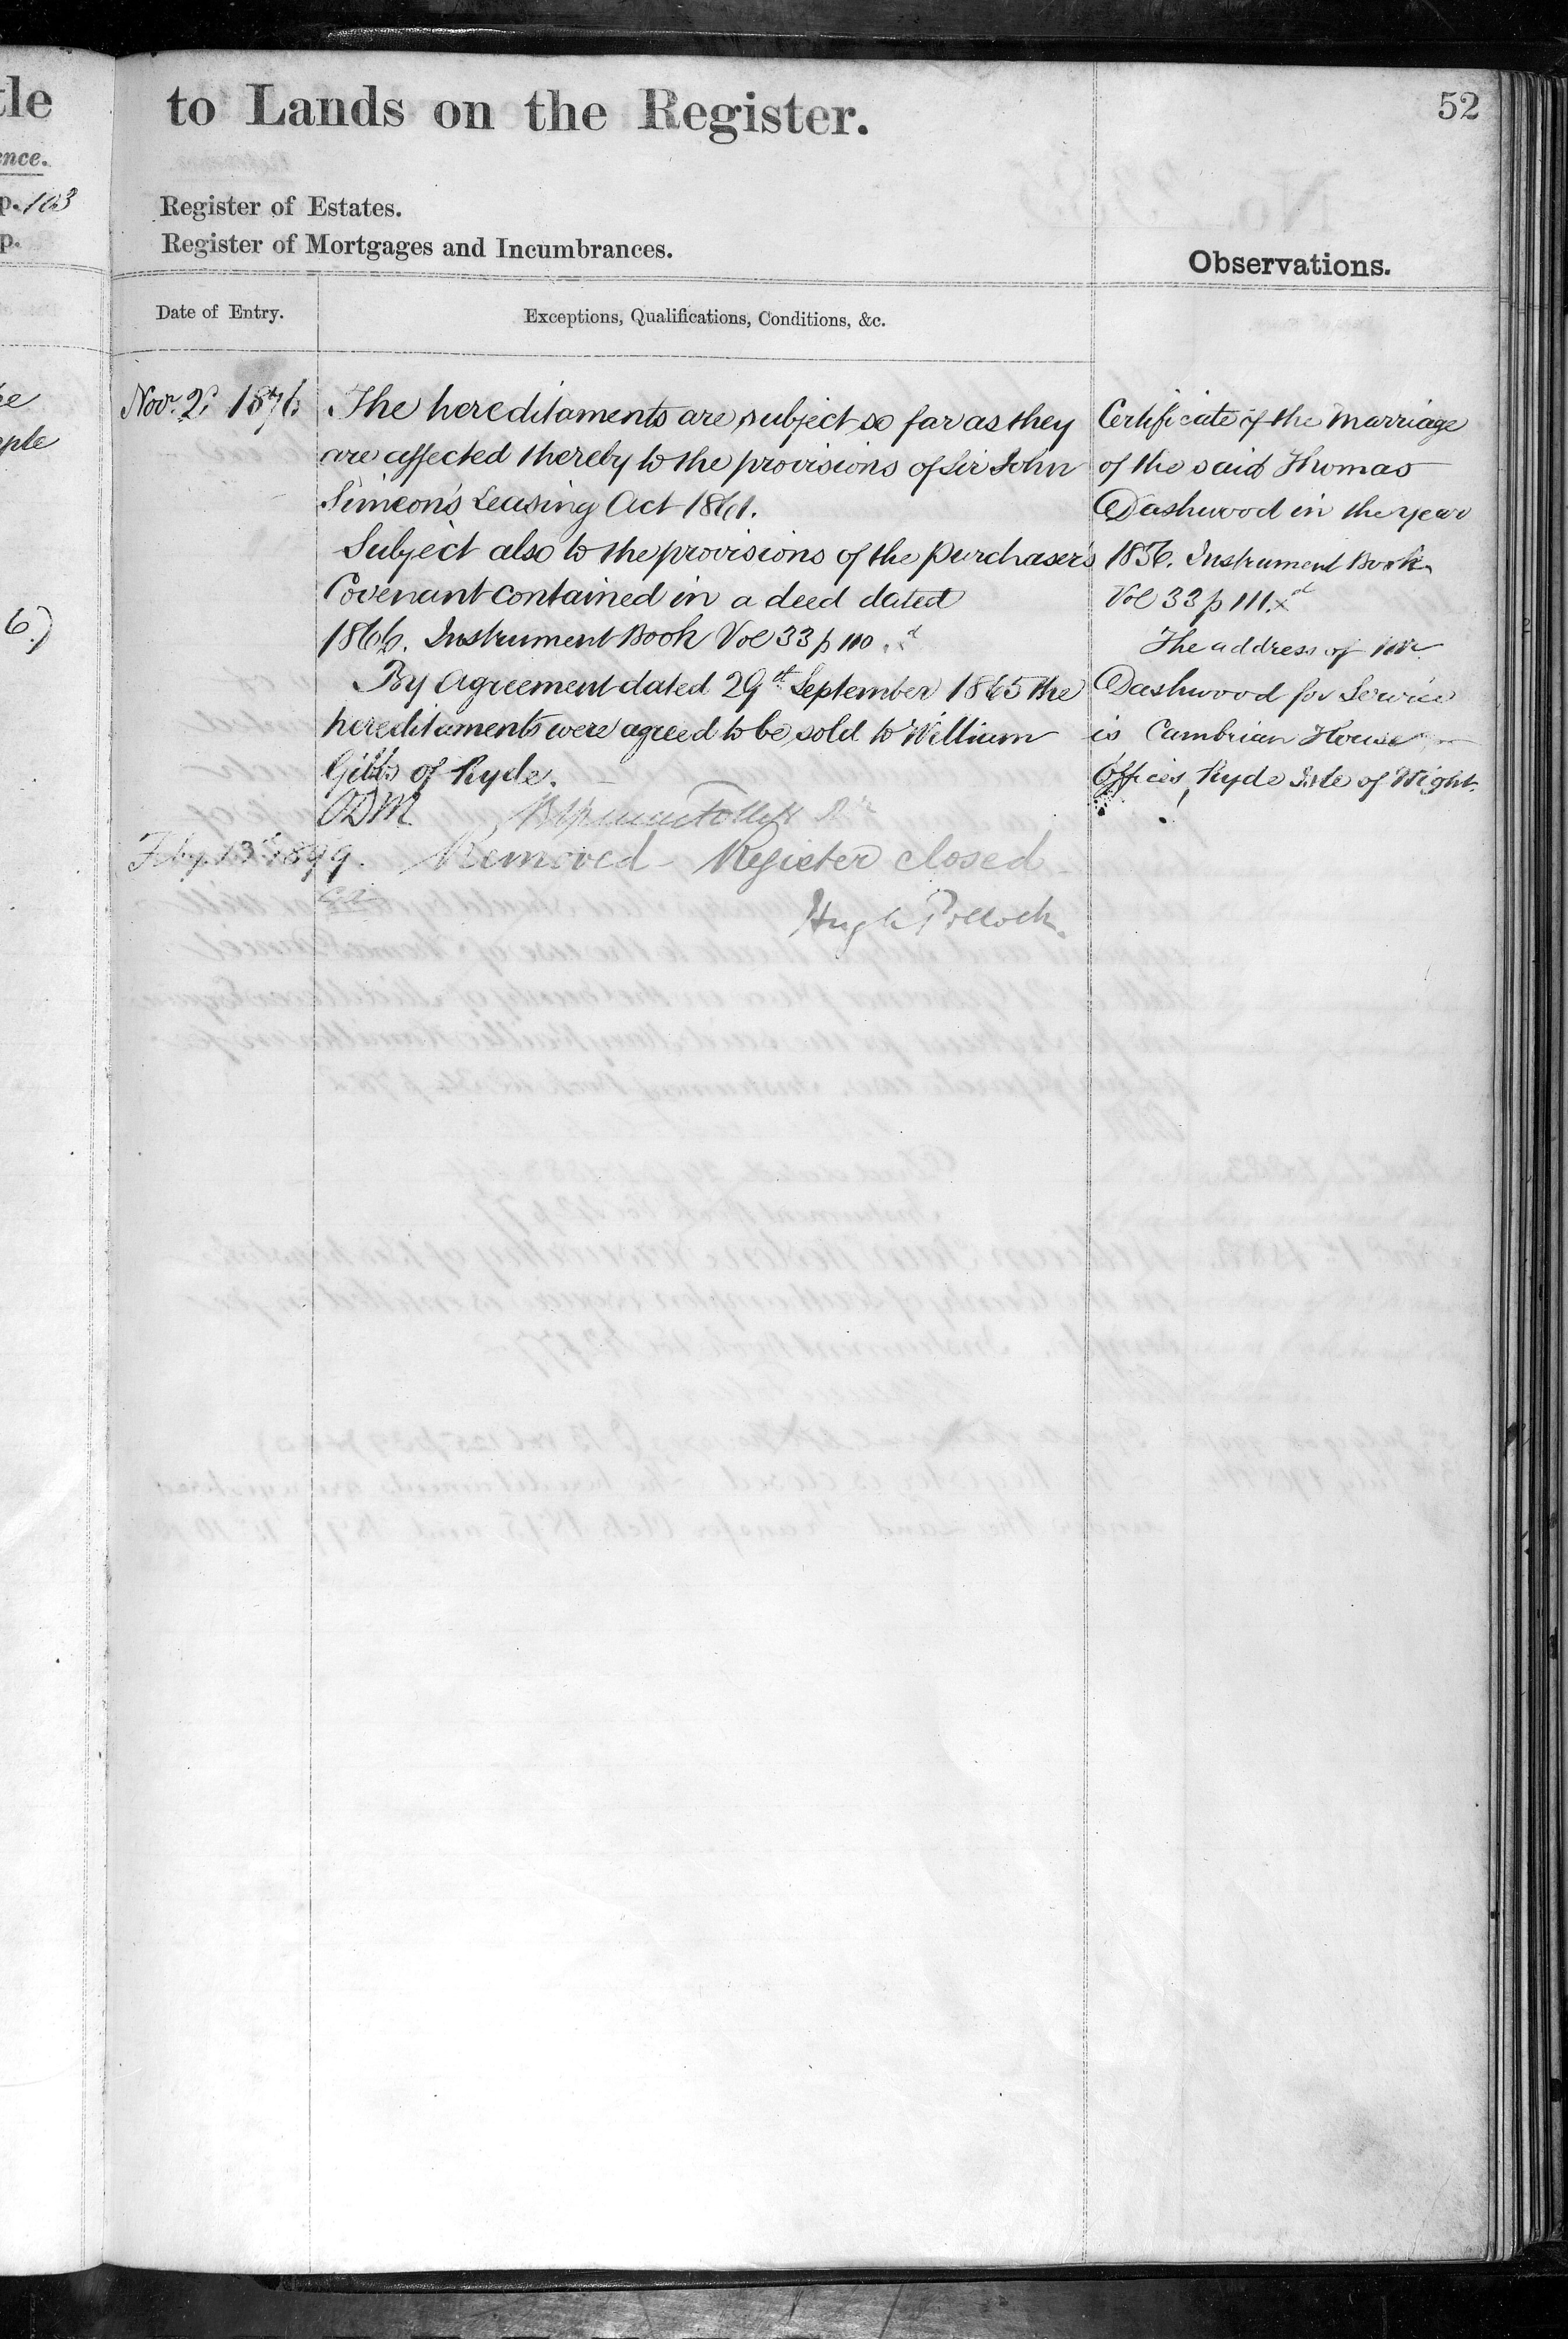 tle
to Lands on the Register.
52
ence.
p. 103
p.
Register of Estates.
Register of Mortgages and Incumbrances.
Observations.
Date of Entry.
Exceptions, Qualifications, Conditions, &c.
Novr. 2, 1876
The hereditaments are subject so far as they
are affected thereby to the provisions of Sir John
Simeon's Leasing Act 1861.
Subject also to the provisions of the purchaser's
Covenant contained in a deed dated
1866. Instrument Book Vol 33 p 110.
By Agreement dated 29th September 1865 the
hereditaments were agreed to be sold to William
Gibbs of Ryde.
Certificate of the Marriage
of the said Thomas
Dashwood in the year
1856. Instrument Book
Vol 33 p 111.
The address of Mr
Dashwood for Service
is Cambrian House
Offices, Ryde Isle of Wight.
6.)
Feby. 13th 1899.
Removed - Register closed
Hugh Pollock.